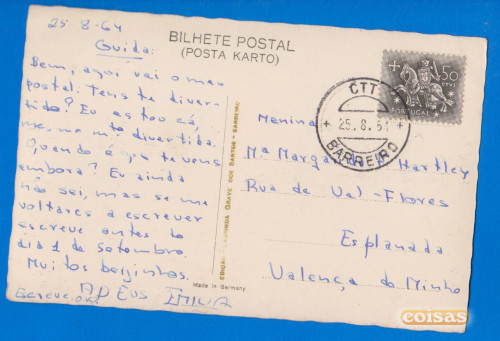 25-8-64
Guida:
Bem, aqui vai o meu
postal. Tens te diver-
tido? Eu estou cá,
mesmo mto divertida.
Quando é que te vens
embora? Eu ainda
não sei, mas se me
voltares a escrever
escreve antes do
dia 1 de setembro.
Muitos beijinhos.
ADEUS EMILIA
BILHETE POSTAL
(POSTA KARTO)
DOS SANTOS - BARREIRO
Made in Germany
50
PORTUGAL
CTT
25.8.64
BARREIRO
Menina
Mª Hartley
Rua de Val-Flores
Esplanada
Valença do Minho
coisas